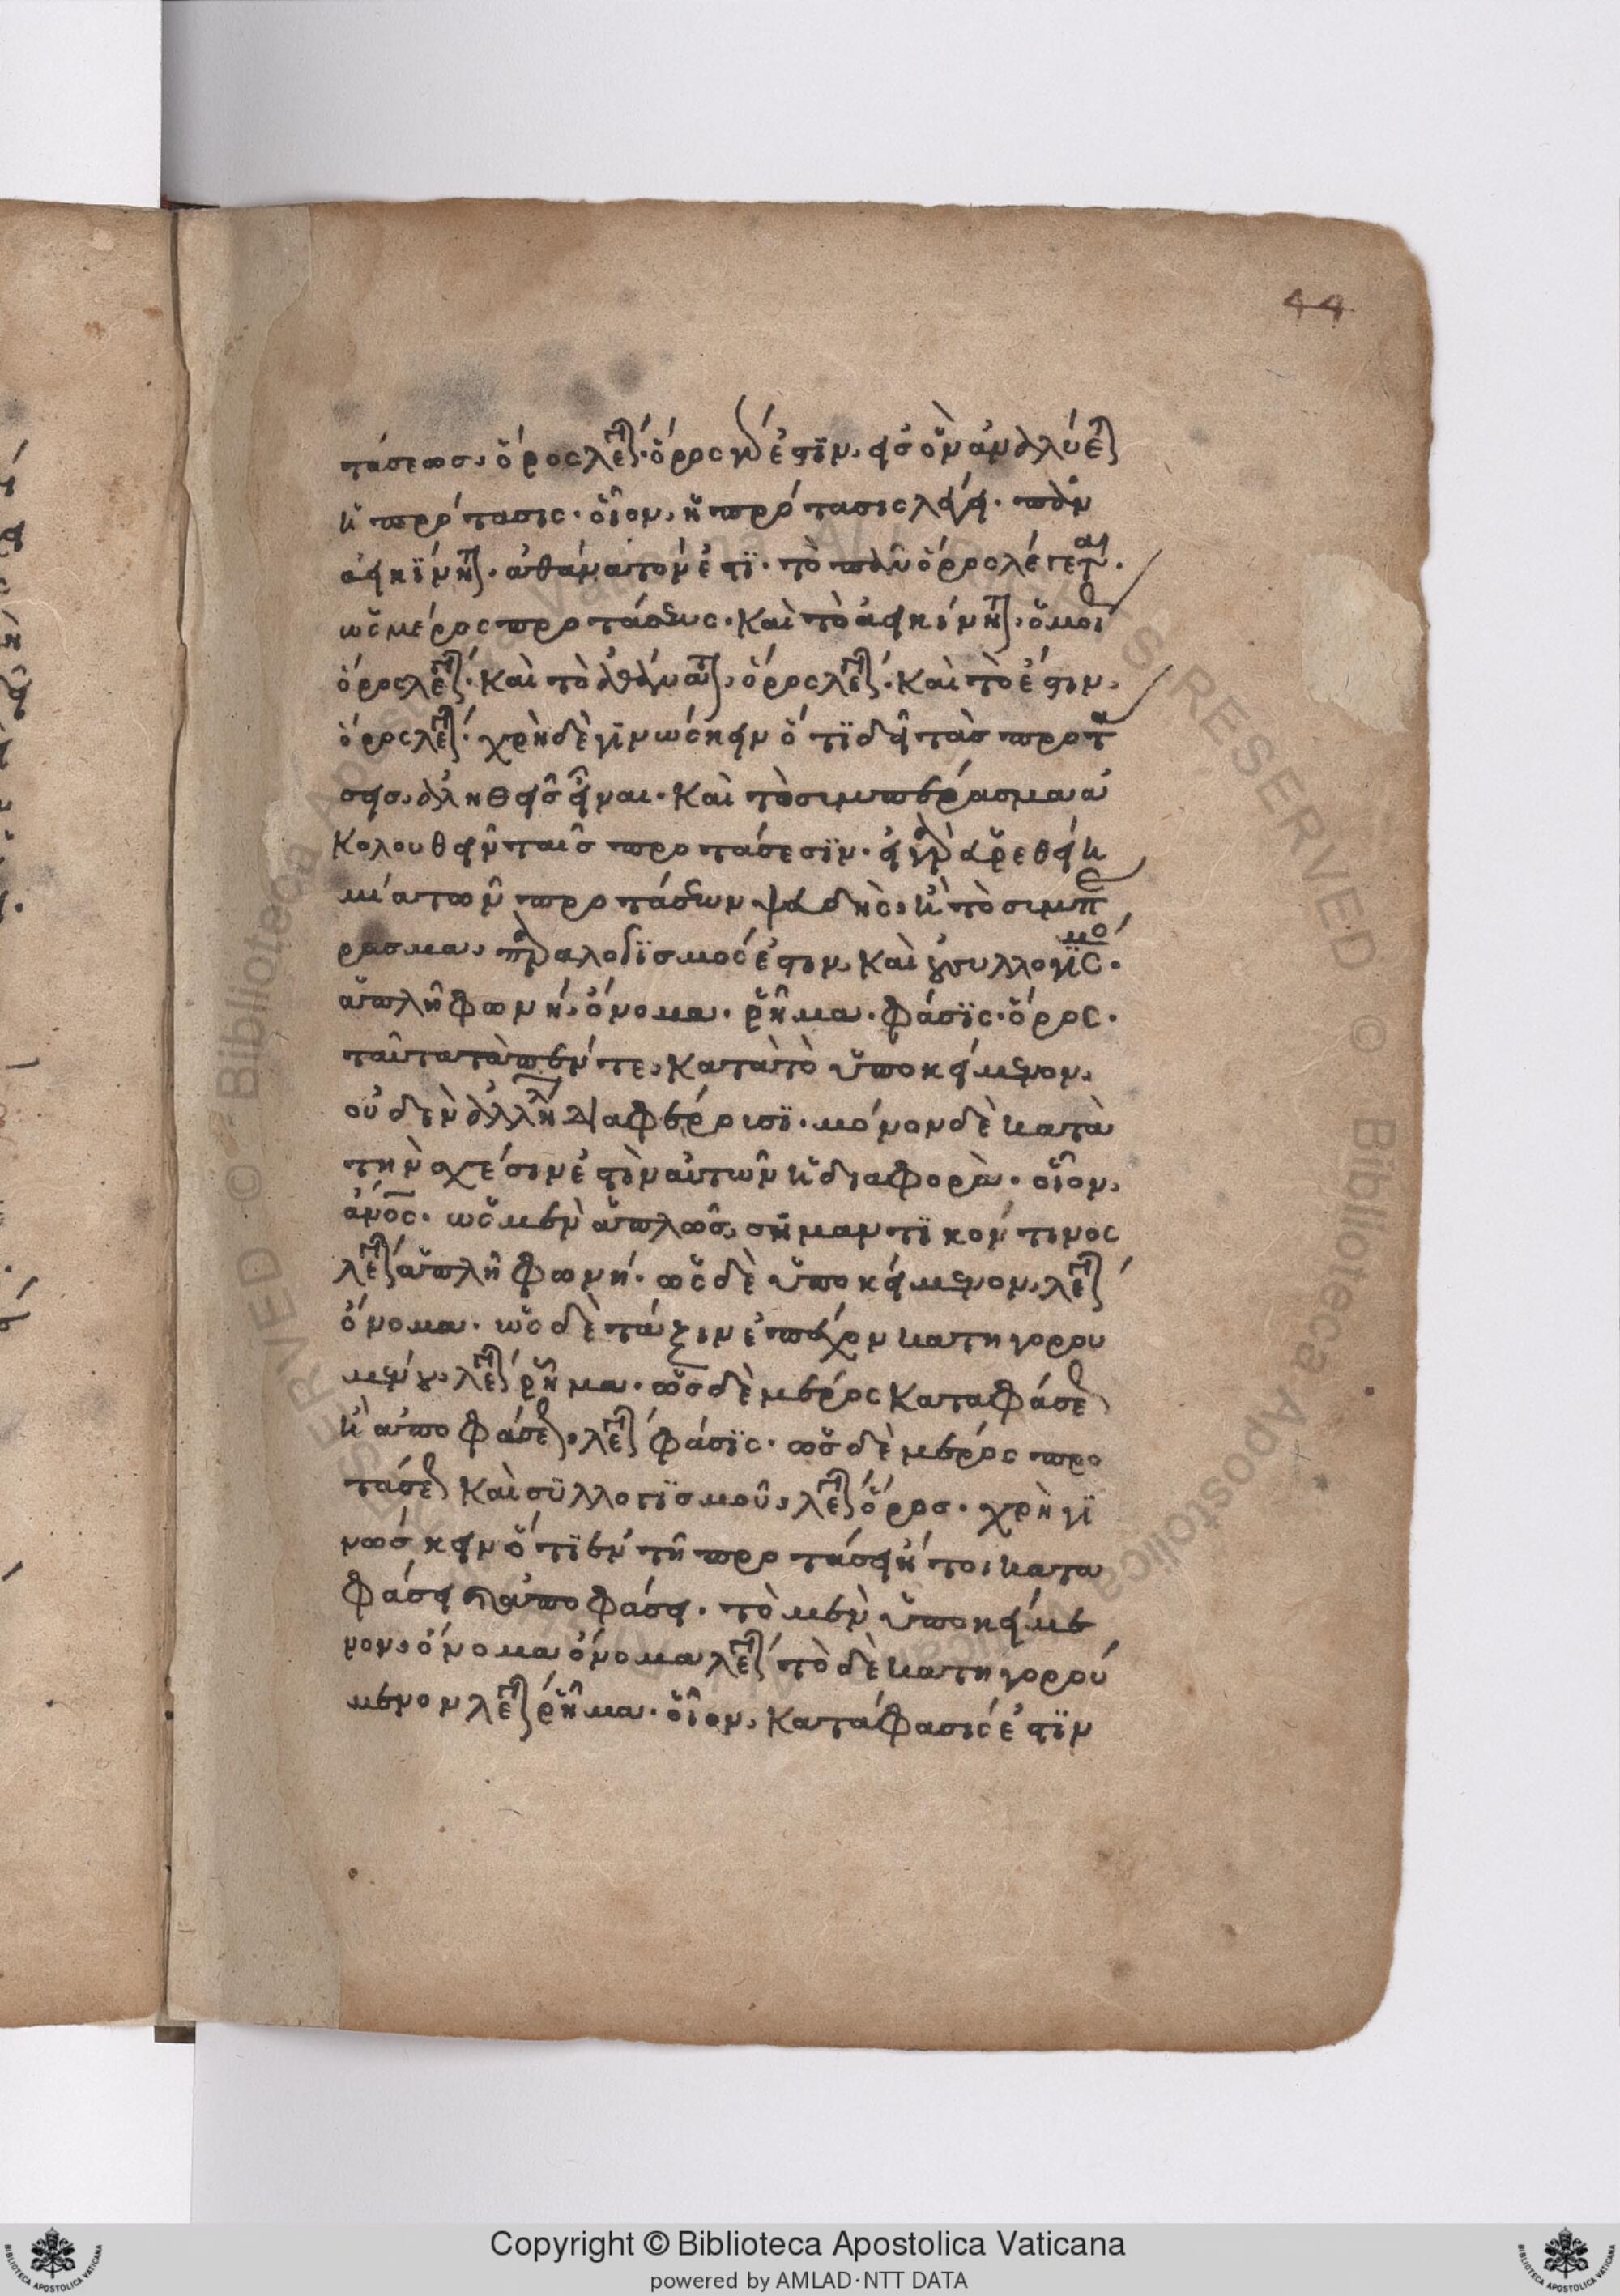 44
τάσεως, ὅρος λέγεται· ὅρος γάρ ἐστϊν, εἰς ὃν ἀναλύεται
ἡ πρότασις· οἷον, ἡ πρότασις λέγει· πᾶν
ἀεικϊνητον· ἀθάνατόν ἐστϊ· τὸ πᾶν ὅρος λέγεται·
ὡς μέρος προτάσεως· καὶ τὸ ἀεικίνητον· ὁμοίως
ὅρος λέγεται· καὶ τὸ ἀθάνατον, ὅρος λέγεται· καὶ τὸ ἐστιν,
ὅρος λέγεται· χρὴ δὲ γϊνώσκειν ὅτϊ δεῖ τὰς προτά
σεις, ἀληθεῖς εἶναι· καὶ τὸ συμπέρασμα ἀ
κολουθεῖν ταῖς προτάσεσϊν· εἰ γὰρ εὑρεθείη
μία τῶν προτάσεων ψευδὴς, ἢ τὸ συμπέ
ρασμα, παραλογϊσμός ἐστιν, καὶ οὐ συλλογϊσμός·
ἁπλῆ φωνή, ὄνομα· ῥῆμα· φάσϊς· ὅρος·
ταῦτα τὰ πέντε, κατὰ τὸ ὑποκείμενον,
οὐδὲν ἀλλήλων διαφέρουσϊ· μόνον δὲ κατὰ
τὴν σχέσιν ἐστὶν αὐτῶν ἡ διαφορὰ· οἷον,
ἄνος· ὡς μὲν ἁπλῶς, σημαντϊκόν τινος
λέγεται ἁπλῆ φωνή· ὡς δὲ ὑποκείμενον, λέγεται
ὄνομα· ὡς δὲ τάξιν ἐπέχον κατηγορου
μένου, λέγεται ῥῆμα· ὡς δὲ μέρος καταφάσεως
ἢ ἀποφάσεως, λέγεται φάσϊς· ὡς δὲ μέρος προ
τάσεως καὶ συλλογϊσμοῦ, λέγεται ὅρος· χρὴ γϊ
νώσκειν ὅτϊ ἐν τῇ προτάσει ἤτοι κατα
φάσει καὶ ἀποφάσει· τὸ μὲν ὑποκείμε
νον, ὄνομα ὄνομα λέγεται τὸ δὲ κατηγορού
μενον λέγεται ῥῆμα· οἷον, κατάφασίς ἐστϊν
Copyright © Biblioteca Apostolica Vaticana
powered by AMLAD·NTT DATA